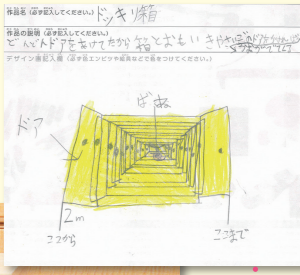 作品名(必ず記入してください。) ドッキリ箱
作品の説明(必ず記入してください。)
どんどんドアをあけてたから箱とおもいきや
デザイン画記入欄(必ず色エンピツや絵具などで色をつけてください。)
ばね
ドア
2m
ここから
ここまで